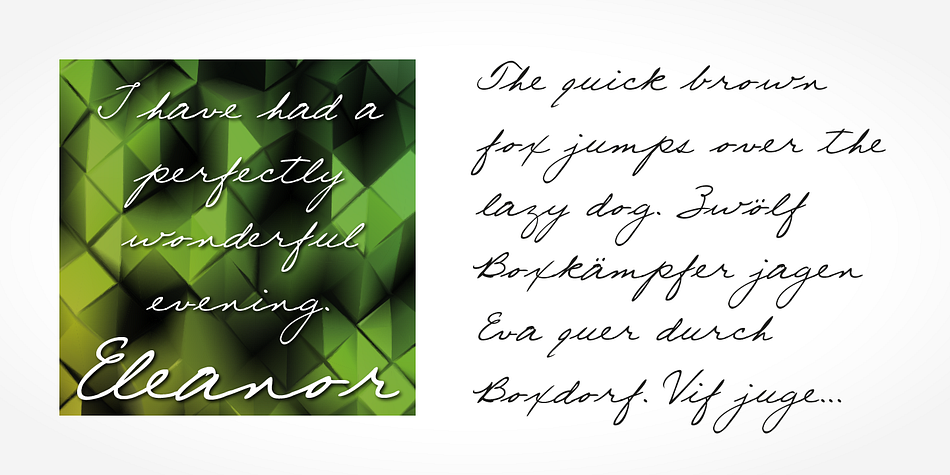 I have had a
perfectly
wonderful
evening.
Eleanor
The quick brown
fox jumps over the
lazy dog. Zwölf
Boxkämpfer jagen
Eva quer durch
Boxdorf. Vif juge...